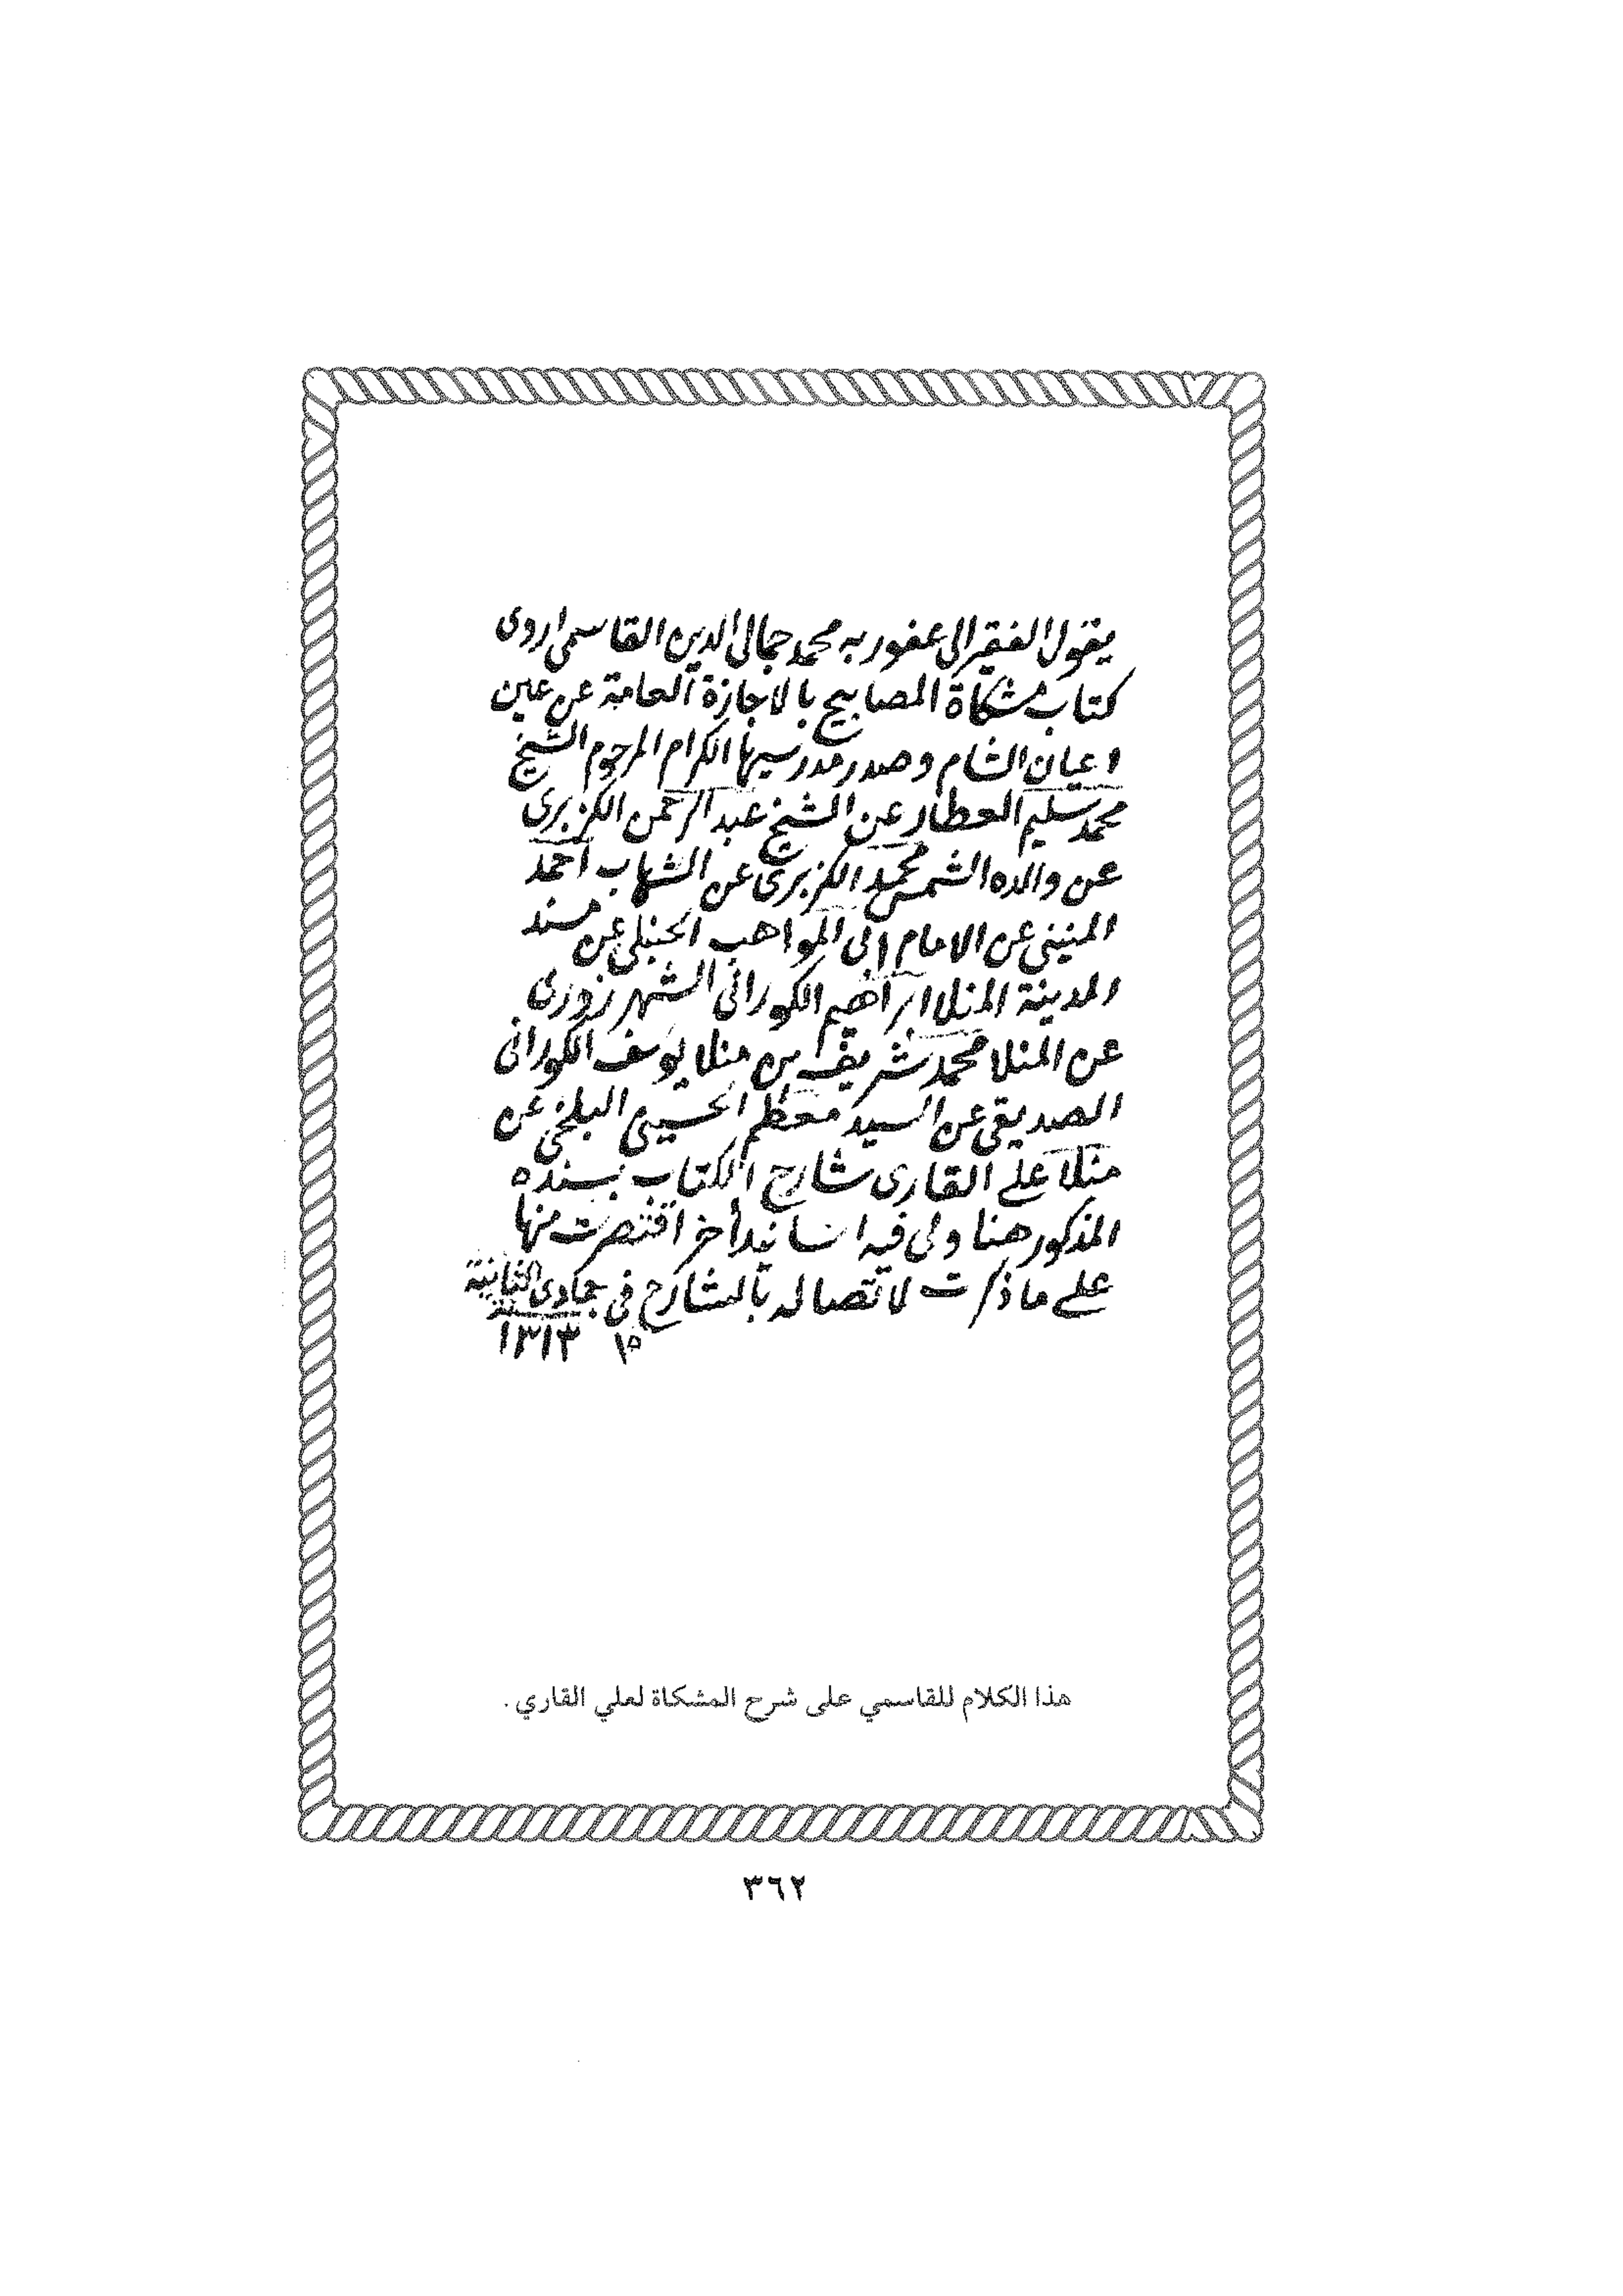 يقول الفقير الى عفو ربه محمد جمال الدين القاسمى اروى
كتاب مشكاة المصابيح بالاجازة العامة عن عين
اعيان الشام وصدر مدرسيها الكرام المرحوم الشيخ
محمد سليم العطار عن الشيخ عبد الرحمن الكزبرى
عن والده الشمس محمد الكزبرى عن الشهاب احمد
المنينى عن الامام ابى المواهب الحنبلى عن مسند
المدينة المنلا ابراهيم الكورانى الشهرزورى
عن المنلا محمد شريف بن منلا يوسف الكورانى
الصديقى عن السيد معظم الحسينى البلخى عن
منلا على القارى شارح الكتاب بسنده
المذكور هنا ولى فيه اسانيد أخر اقتصرت منها
على ما ذكرت لاتصاله بالشارح فى جمادى الثانية سنة
١٥ ١٣١٣
هذا الكلام للقاسمي على شرح المشكاة لعلي القاري .
٣٦٢